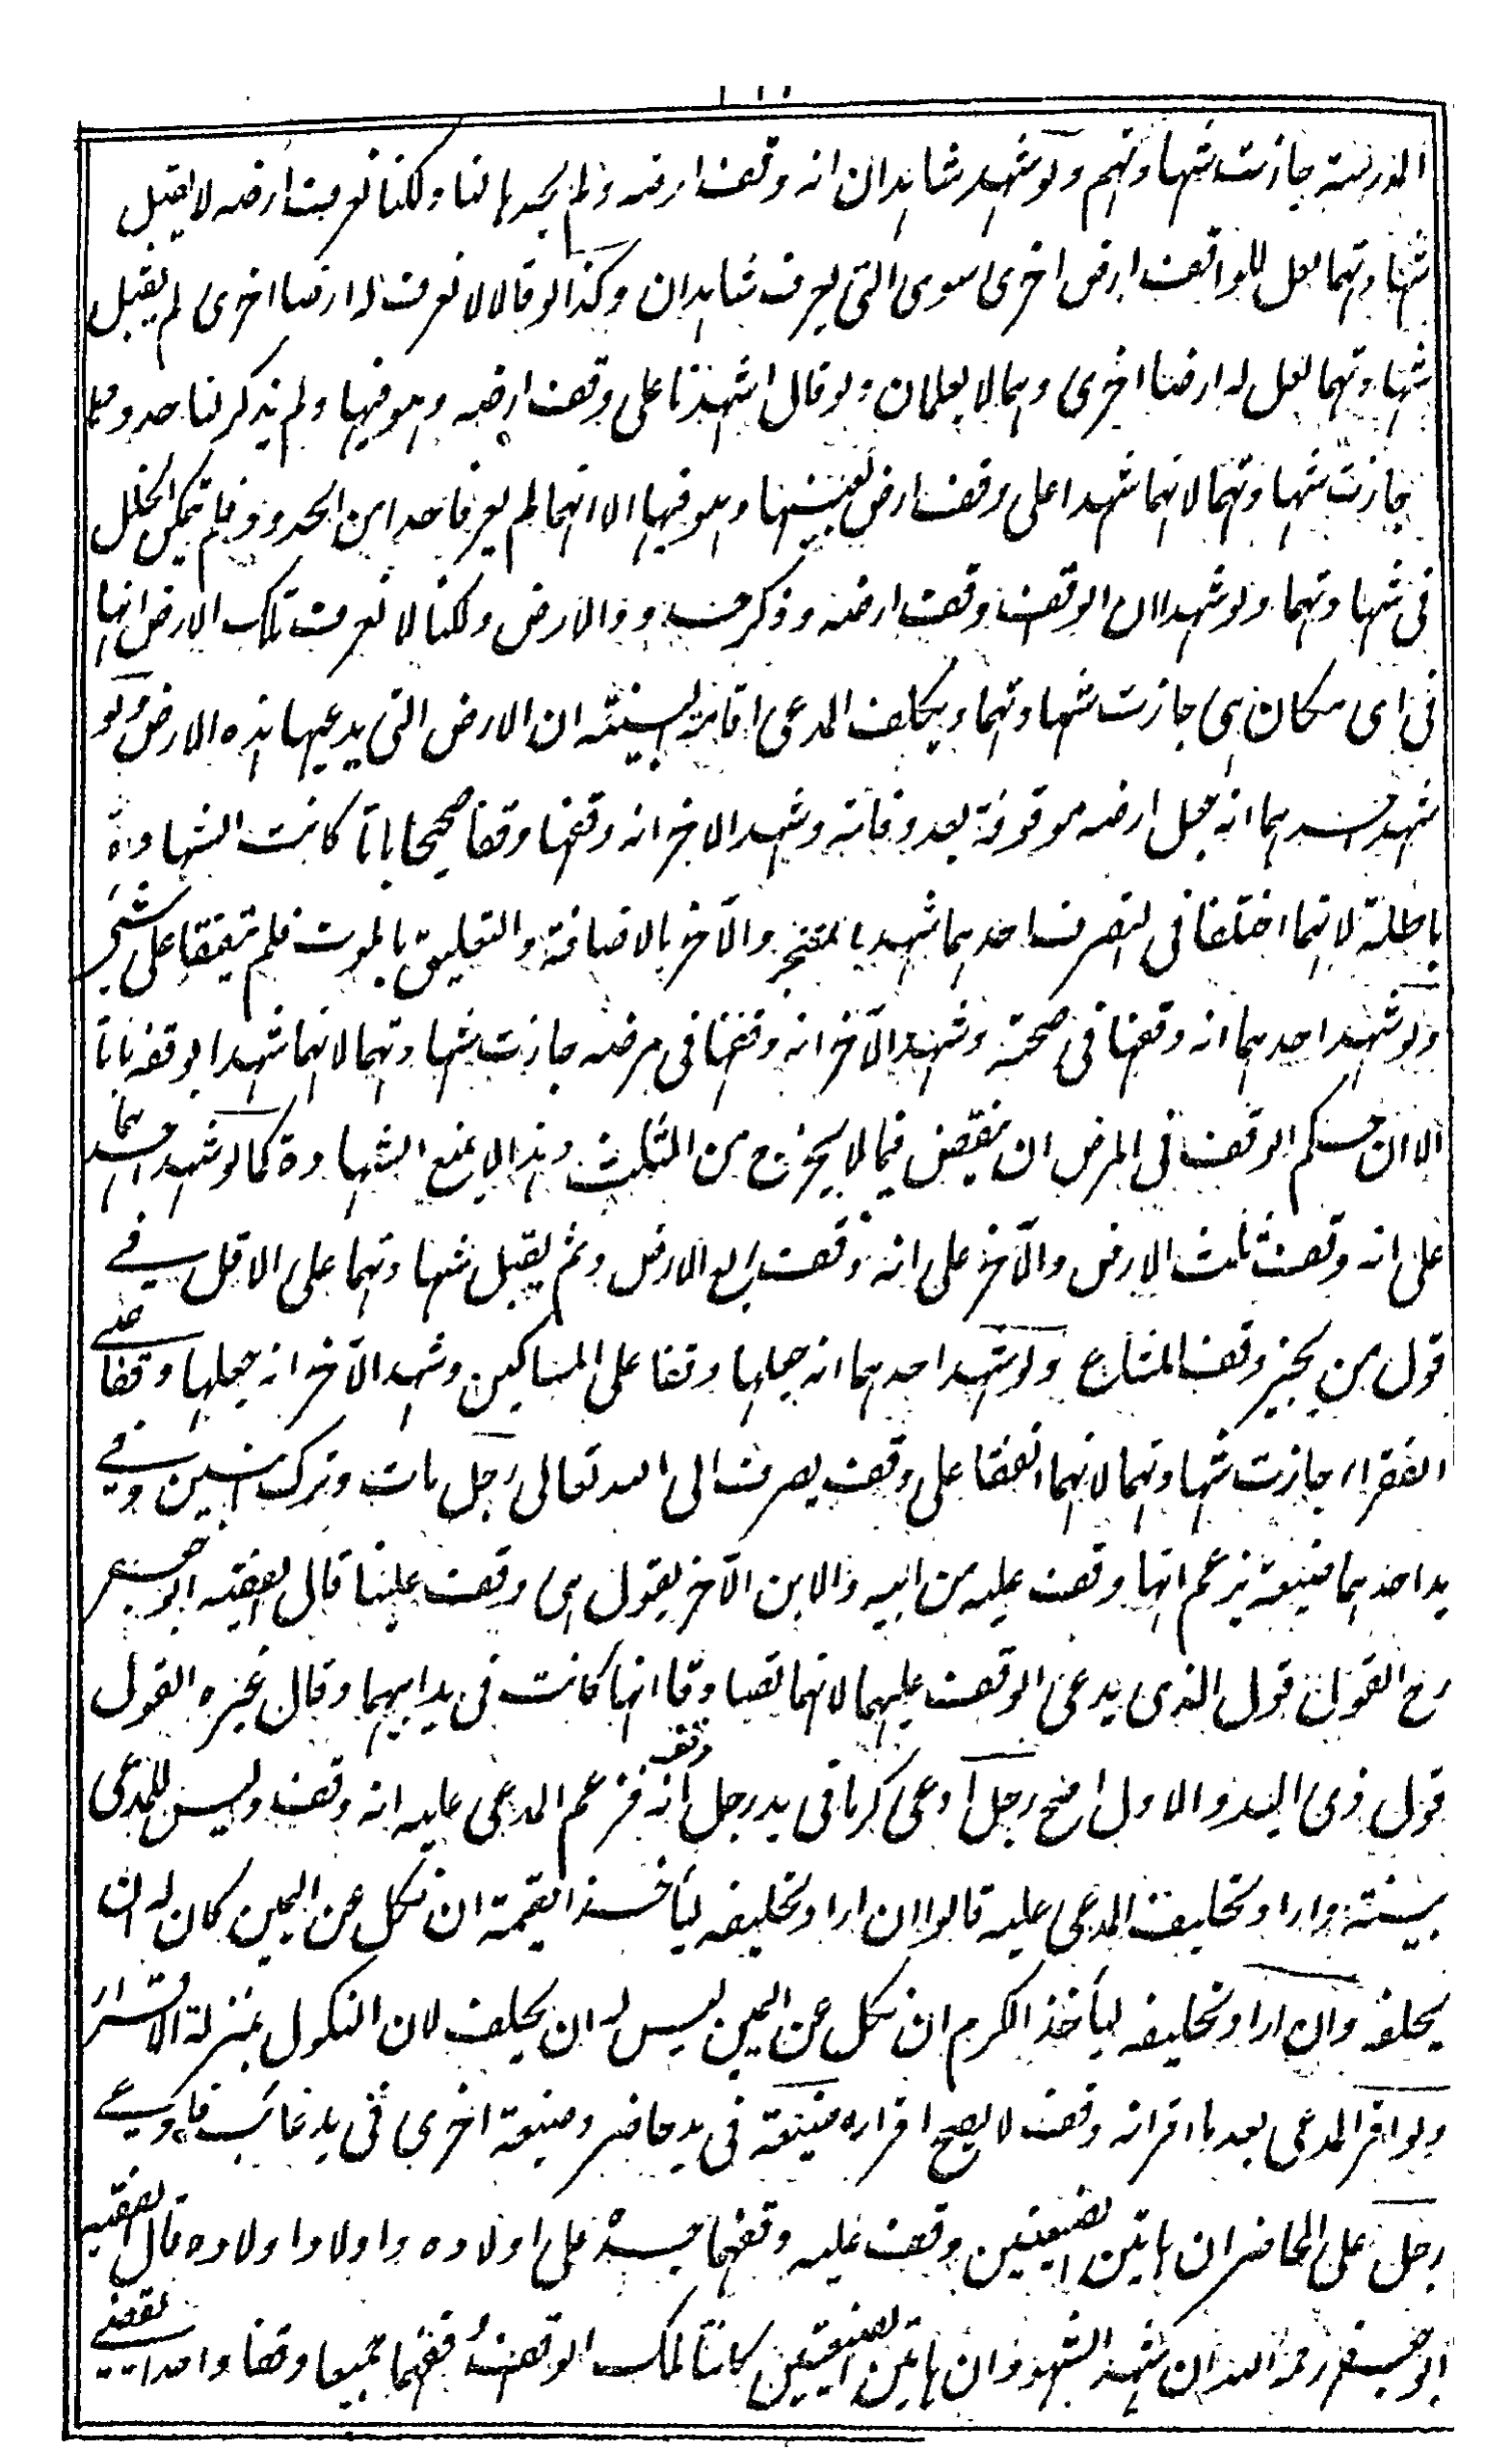 المدرسة جازت شهادتهم ولو شهد شاهدان انه وقف ارضه ولم يحدها لنا ولكنا نعرف ارضه لا يقبل
شهادتهما لعل للواقف ارض اخرى سوى التى يعرف شاهدان وكذا لو قالا لا نعرف له ارضا اخرى لم يقبل
شهادتهما لعل له ارضا اخرى وهما لا يعلمان ولو قال اشهدنا على وقف ارضه وهو فيها ولم يذكر لنا حدودها
جازت شهادتهما لانهما شهدا على وقف ارض بعينها وهو فيها الا انهما لم يعرفا حدا من الحدود فلم يتمكن الخلل
فى شهادتهما ولو شهدا ان الواقف وقف ارضه وذكر حدود الارض ولكنا لا نعرف تلك الارض انها
فى اى مكان هى جازت شهادتهما ويكلف المدعى اقامة البينة ان الارض التى يدعيها هذه الارض ولو
شهد احدهما انه جعل ارضه موقوفة بعد وفاته وشهد الاخر انه وقفها وقفا صحيحا باتا كانت الشهادة
باطلة لانهما اختلفا فى التصرف احدهما شهد بالمنجز والآخر بالاضافة والتعليق بالموت فلم يتفقا على شئ
ولو شهد احدهما انه وقفها فى صحته وشهد الآخر انه وقفها فى مرضه جازت شهادتهما لانهما شهدا بوقف باتا
الا ان حكم الوقف فى المرض ان ينقض فيما لا يخرج من الثلث وهذا لا يمنع الشهادة كما لو شهد احدهما
على انه وقف ثلث الارض والآخر على انه وقف ربع الارض وثم يقبل شهادتهما على الاقل فى
قول من يجيز وقف المشاع ولو شهد احدهما انه جعلها وقفا على المساكين وشهد الآخر انه جعلها وقفا على
الفقراء جازت شهادتهما لانهما اتفقا على وقف يصرف الى الله تعالى رجل مات وترك ابنين وفى
يد احدهما ضيعة يزعم انها وقف عليه من ابيه والابن الآخر يقول هى وقف علينا قال الفقيه ابو جعفر
رح القول قول الذى يدعى الوقف عليهما لانهما تصادقا انها كانت فى يد ابيهما وقال غيره القول
قول ذى اليد والاول اصح رجل ادعى كرما فى يد رجل انه وقف فزعم المدعى عليه انه وقف وليس للمدعى
بينة واراد تحليف المدعى عليه قالوا ان اراد تحليفه ليأخذ القيمة ان نكل عن اليمين كان له ان
يحلفه وان اراد تحليفه ليأخذ الكرم ان نكل عن اليمين ليس له ان يحلف لان النكول بمنزلة الاقرار
ولو اقر المدعى بعد ما اقر انه وقف لا يصح اقراره ضيعة فى يد حاضر وضيعة اخرى فى يد غائب فادعى
رجل على الحاضر ان هاتين الضيعتين وقف عليه وقفهما جده على اولاده واولاد اولاده قال الفقيه
ابو جعفر رحمه الله ان شهد الشهود ان هاتين الضيعتين كانتا لملك الواقف وقفهما جميعا وقفا واحدا يقضى